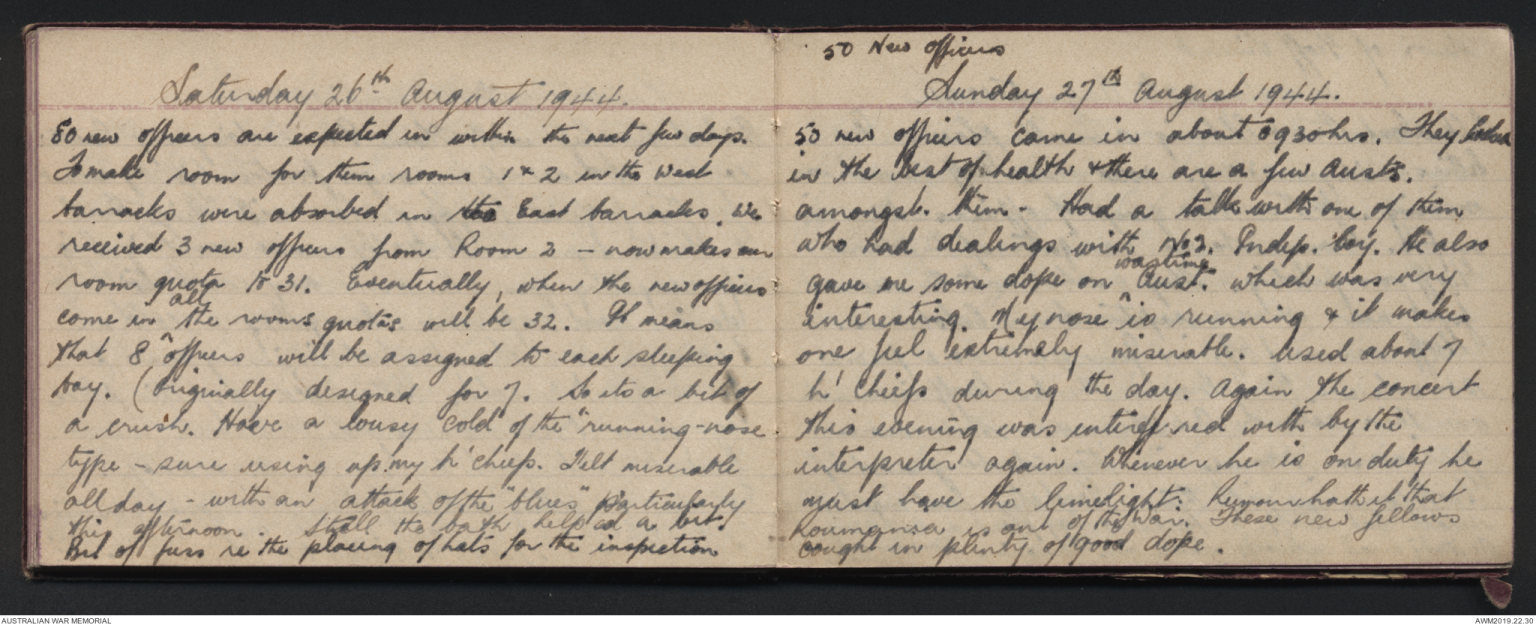 Saturday 26th August 1944.
50 new officers are expected in within the next few days.
To make room for them rooms 1 & 2 in the West
barracks were absorbed in the East barracks. We
received 3 new officers from Room 2 - now makes our
room quota to 31. Eventually, when the new officers
come in all the rooms quotas will be 32. It means
that 8 officers will be assigned to each sleeping
bay. (Originally designed for 7. So its a bit of
a crush. Have a lousy cold of the "running-nose
type - sure using up my h'chiefs. Felt miserable
all day - with an attack of the "blues" particularly
this afternoon. Still the bath helped a bit.
Bit of fuss re the placing of hats for the inspection
50 New officers
Sunday 27th August 1944.
50 new officers came in about 0930hrs. They looked
in the best of health & there are a few Austs.
amongst them - Had a talk with one of them
who had dealings with No 2. Indep. Coy. He also
gave me some dope on wartime Aust. which was very
interesting. My nose is running & it makes
one feel extremely miserable. Used about 7
h'chiefs during the day. Again the concert
this evening was interferred with by the
interpreter again. Whenever he is on duty he
must have the limelight. Rumour hath it that
Roumania is out of the War. These new fellows
cought in plenty of good dope.